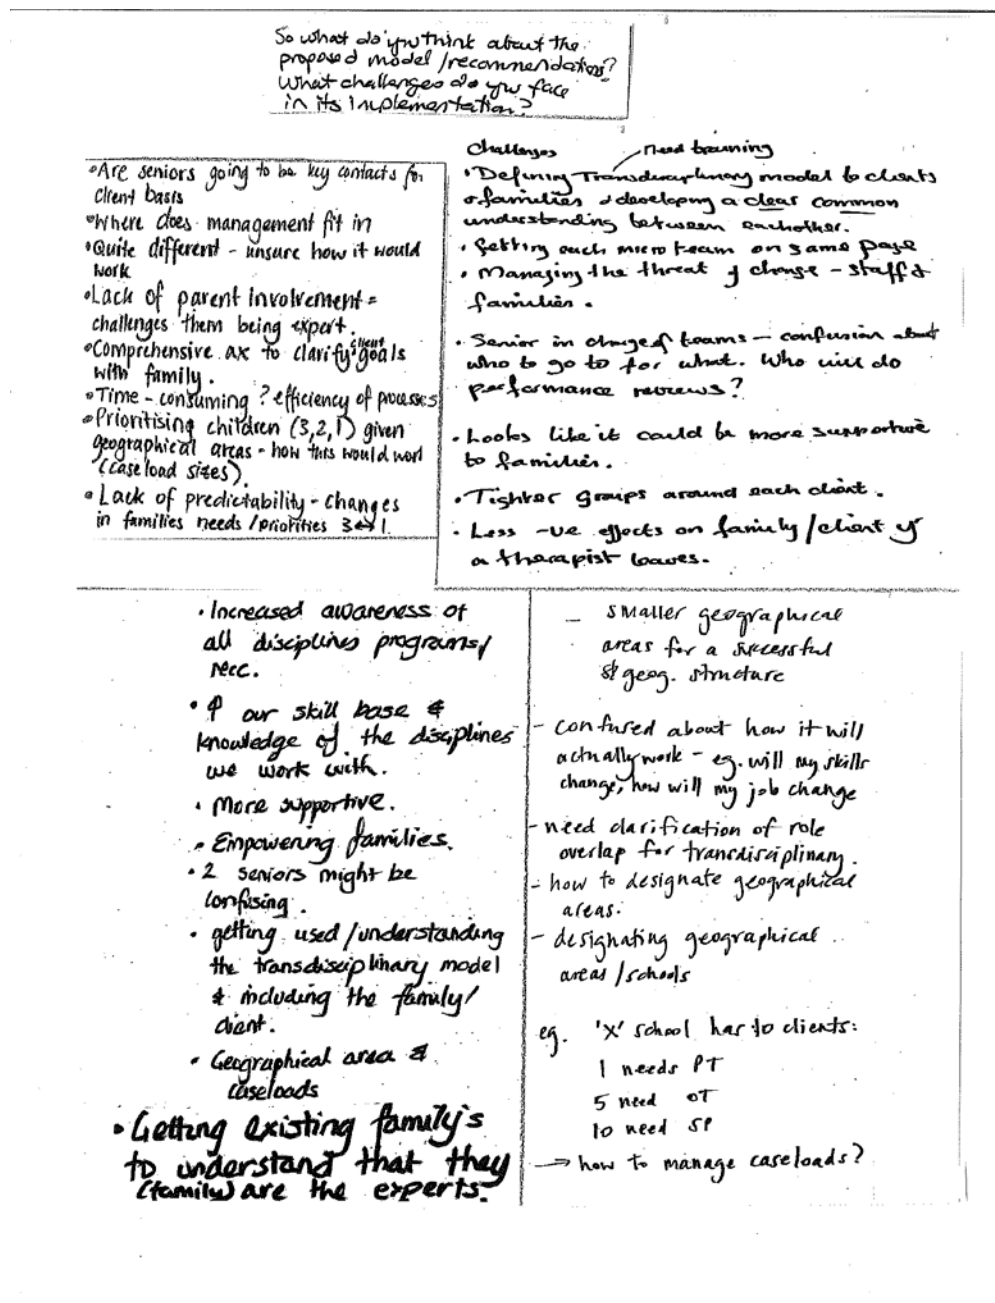 So what do you think about the
proposed model/recommendations?
What challenges do you face
in its implementation?
•Are seniors going to be key contacts for
client basis
•Where does management fit in
•Quite different - unsure how it would
work
•Lack of parent involvement =
challenges them being expert.
•Comprehensive ax to clarify client goals
with family.
•Time - consuming ? efficiency of processes
•Prioritising children (3,2,1) given
geographical areas - how this would work
(caseload sizes).
•Lack of predictability - changes
in families needs/priorities 3↔1.
Challenges
need training
•Defining Transdisciplinary model to clients
& families & developing a clear common
understanding between eachother.
•Getting each micro team on same page
•Managing the threat of change - staff &
families.
•Senior in charge of teams - confusion about
who to go to for what. Who will do
performance reviews?
•Looks like it could be more supportive
to families.
•Tighter groups around each client.
•Less -ve effects on family/client if
a therapist leaves.
•Increased awareness of
all disciplines programs/
recc.
•↑ our skill base &
knowledge of the disciplines
we work with.
•More supportive.
•Empowering families.
•2 seniors might be
confusing.
•getting used/understanding
the transdisciplinary model
& including the family/
client.
•Geographical area &
caseloads
•Getting existing family's
to understand that they
(family) are the experts.
- smaller geographical
areas for a successful
geog. structure
- confused about how it will
actually work - eg. will my skills
change, how will my job change
- need clarification of role
overlap for transdisciplinary.
- how to designate geographical
areas.
- designating geographical
areas/schools
eg. 'X' school has 10 clients:
1 needs PT
5 need OT
10 need SP
→ how to manage caseloads?